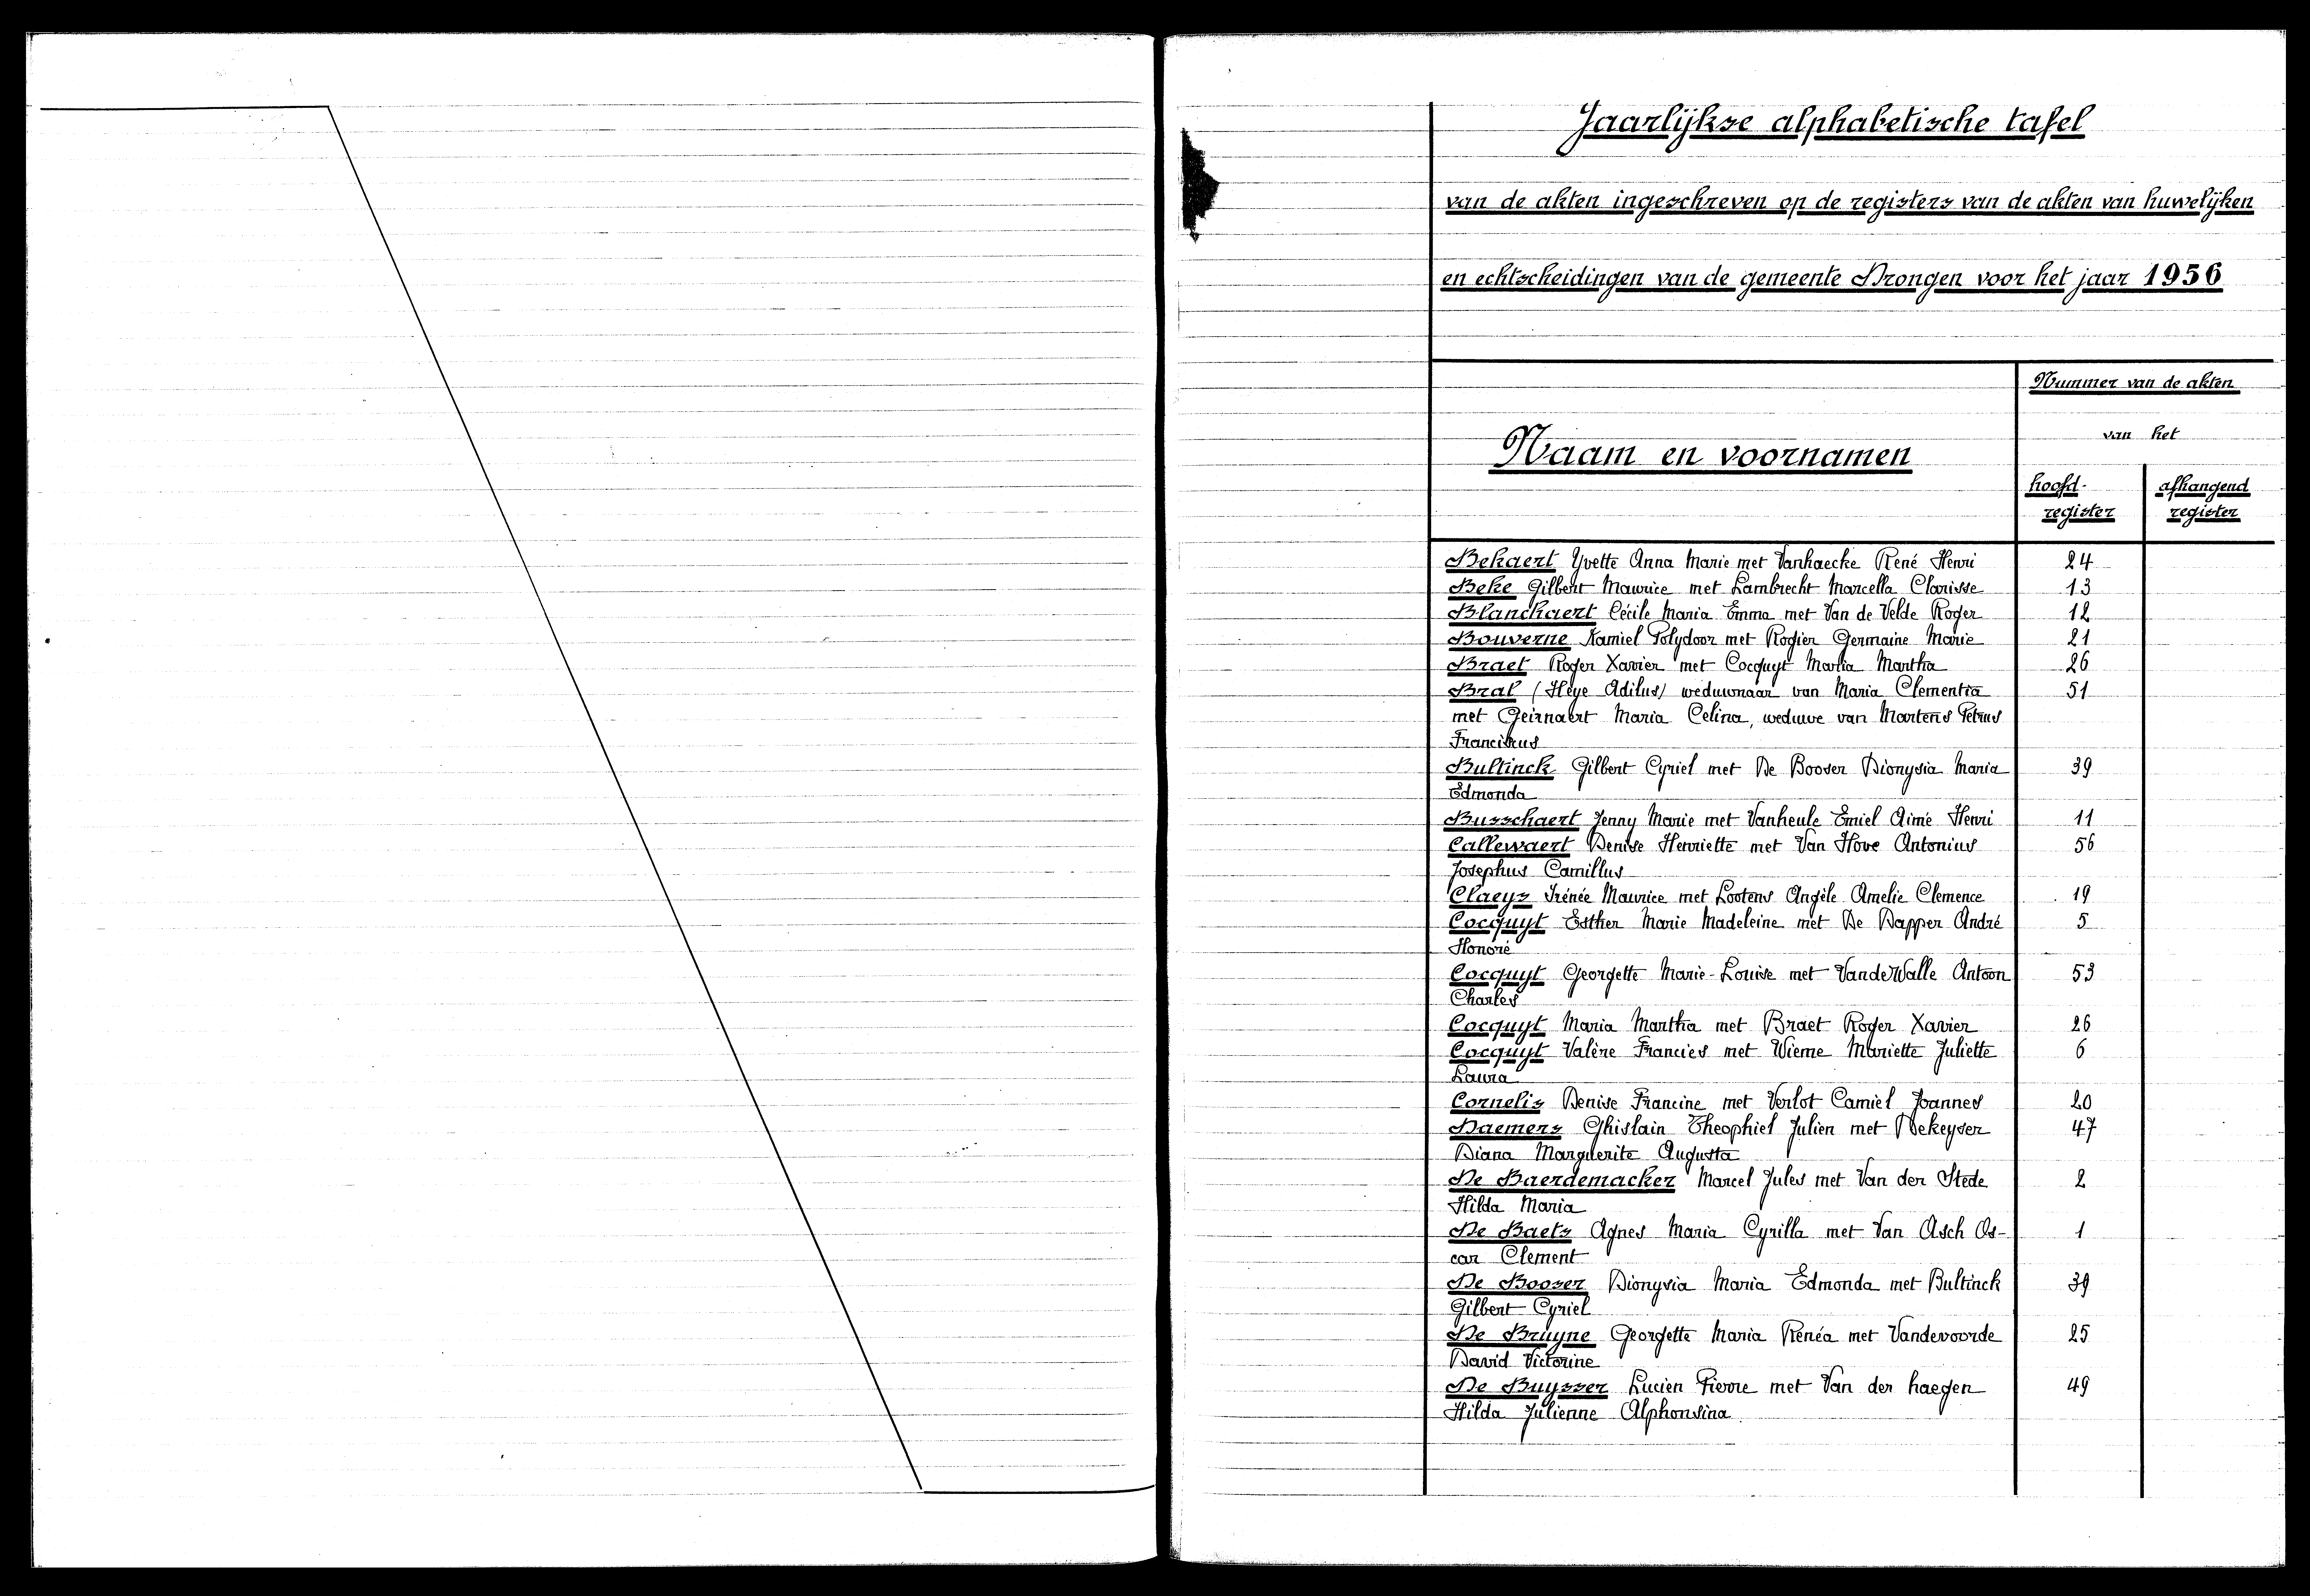 Jaarlijkse alphabetische tafel
van de akten ingeschreven op de registers van de akten van huwelijken
en echtscheidingen van de gemeente Drongen voor het jaar 1956
Nummer van de akten
van het
Naam en voornamen
hoofd- afhangend
register register
Bekaert Yvette Anna Marie met Vanhaecke René Henri 24
Beke Gilbert Maurice met Lambrecht Marcella Clarisse 13
Blanckaert Cécile Maria Emma met Van de Velde Roger 12
Bouverne Kamiel Polydoor met Rogier Germaine Marie 21
Braet Roger Xavier met Cocquyt Maria Martha 26
Bral (Heye Adilus) weduwnaar van Maria Clementia 51
met Geirnaert Maria Celina, weduwe van Martens Petrus
Franciscus
Bultinck Gilbert Cyriel met De Booser Dionysia Maria 39
Edmonda
Busschaert Jenny Marie met Vanheule Emiel Aimé Henri 11
Callewaert Denise Henriette met Van Hove Antonius 56
Josephus Camillus
Claeys Irénée Maurice met Lootens Angèle Amelie Clemence 19
Cocquyt Esther Marie Madeleine met De Dapper André 5
Honoré
Cocquyt Georgette Marie-Louise met VandeWalle Antoon 53
Charles
Cocquyt Maria Martha met Braet Roger Xavier 26
Cocquyt Valène Francies met Wieme Mariette Juliette 6
Laura
Cornelis Denise Francine met Verlot Camiel Joannes 20
Daemers Ghislain Theophiel Julien met Dekeyser 47
Diana Marguerite Augusta
De Baerdemacker Marcel Jules met Van der Stede 2
Hilda Maria
De Baets Agnes Maria Cyrilla met Van Asch Os- 1
car Clement
De Booser Dionysia Maria Edmonda met Bultinck 39
Gilbert Cyriel
De Bruyne Georgette Maria Renéa met Vandevoorde 25
David Victorine
De Buysser Lucien Pierre met Van der haegen 49
Hilda Julienne Alphonsina